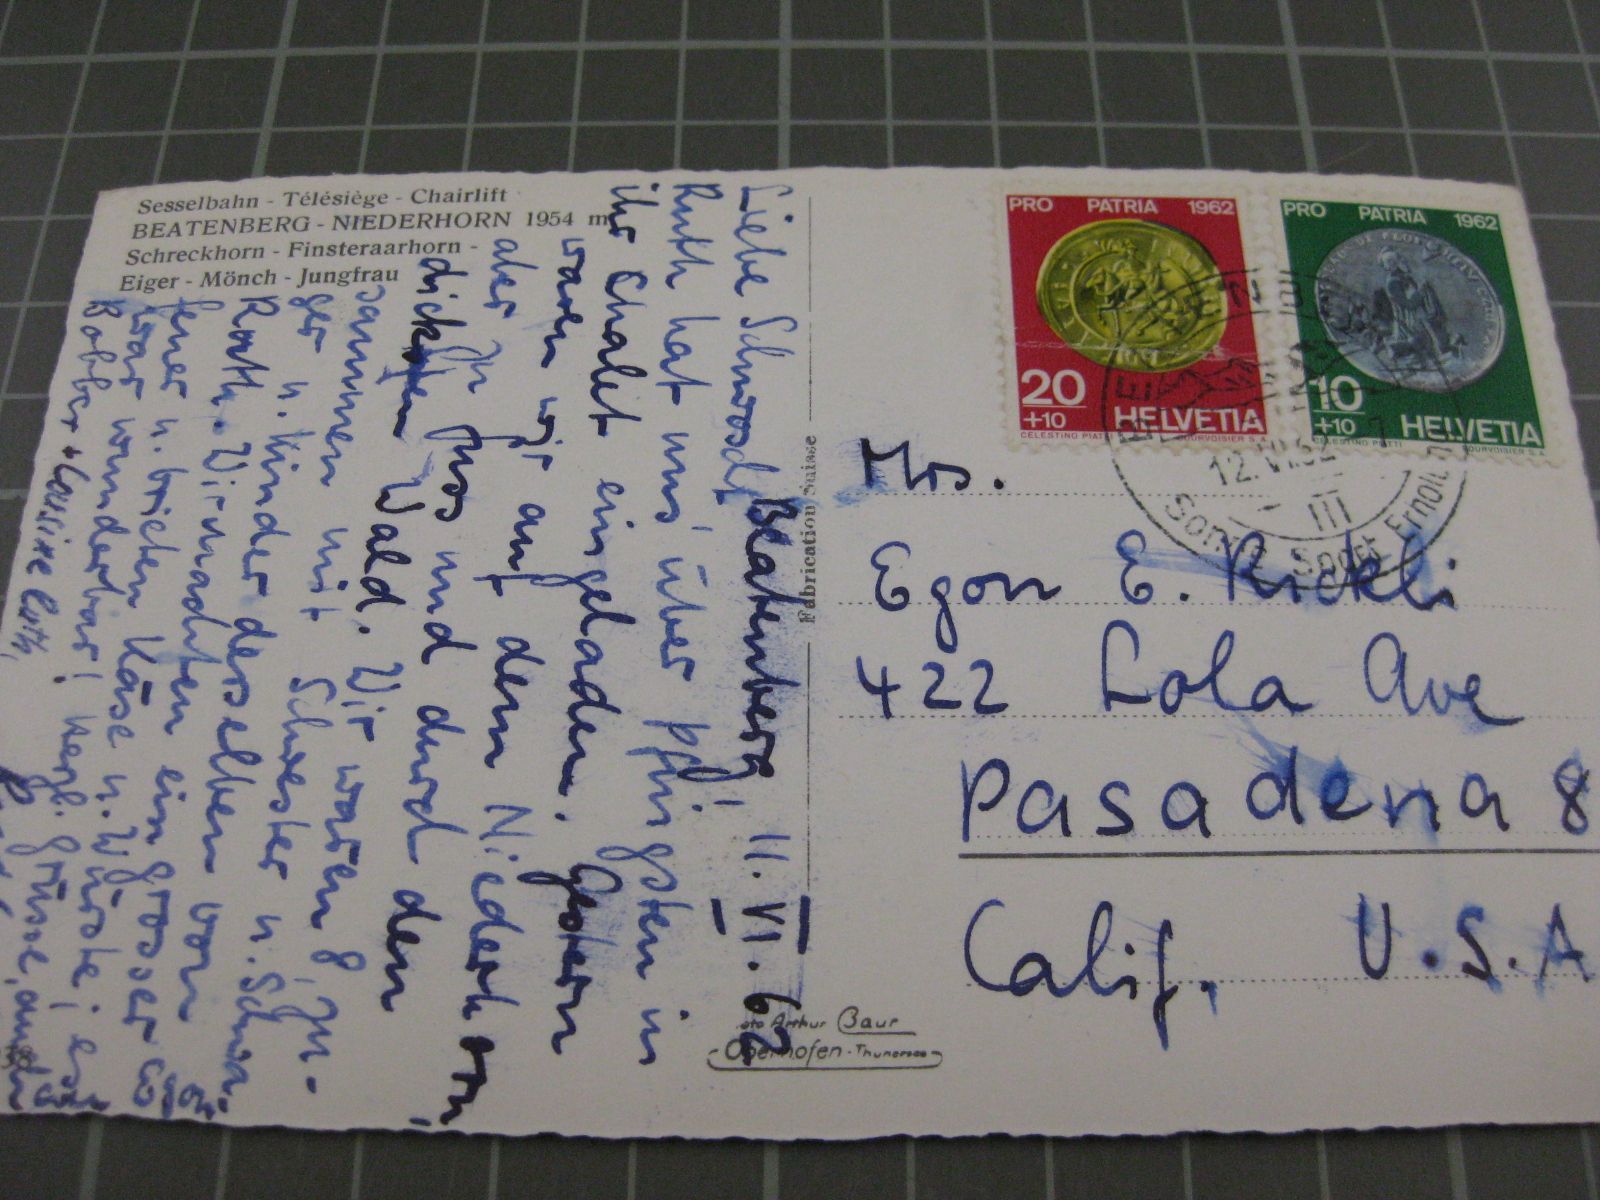 Sesselbahn - Télésiège - Chairlift
BEATENBERG - NIEDERHORN 1954 m
Schreckhorn - Finsteraarhorn -
Eiger - Mönch - Jungfrau
Beatenberg 11. VI. 62
Liebe
Ruth hat uns über Pfingsten in
ihr Chalet eingeladen. Gestern
waren wir auf dem Niederhorn,
aber zu Fuss und durch den
dicksten Wald. Wir waren 8, zu-
sammen mit Schwester u. Schwa-
ger u. Kinder derselben von
Ruth. Wir machten ein grosses
Feuer u. brieten Käse u. Würste, es
war wunderbar! Herzl. Grüsse, auch
Fabrication Suisse
Foto Arthur Baur
Oberhofen - Thunersee
PRO PATRIA 1962
20
+10
HELVETIA
CELESTINO PIATTI
COURVOISIER S.A.
PRO PATRIA 1962
10
+10
HELVETIA
CELESTINO PIATTI
COURVOISIER S.A.
12.VI.62
III
Sonne Sport
Mrs.
Egon E. Rickli
422 Lola Ave
Pasadena 8
Calif. U.S.A